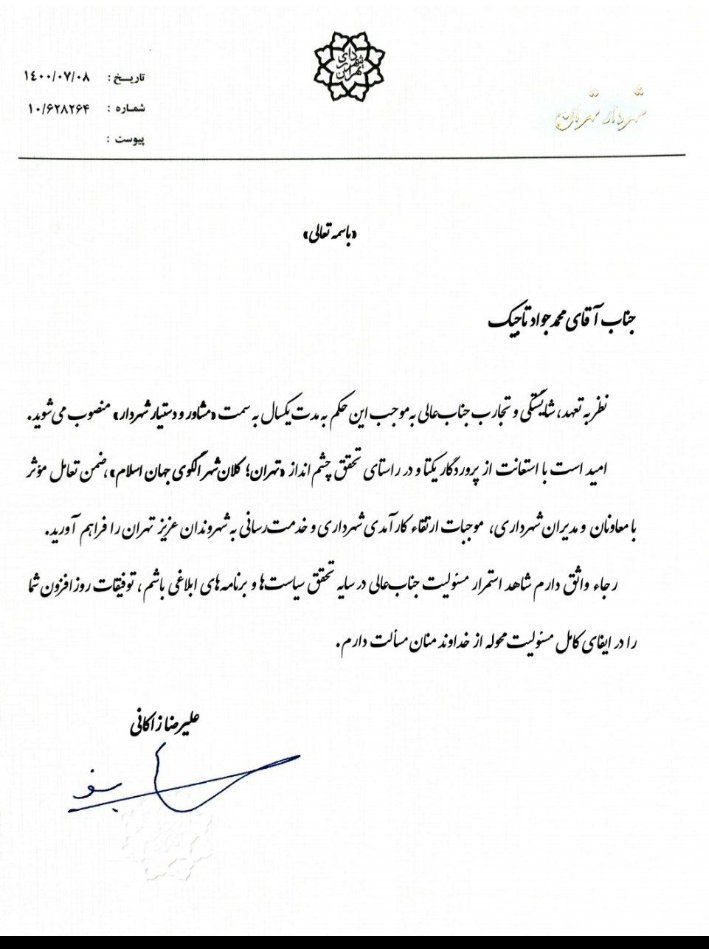 شهرداری تهران
تاریخ : ۱۴۰۰/۰۷/۰۸
شماره : ۱۰/۶۲۸۲۶۴
پیوست :
شهردار تهران
«باسمه تعالی»
جناب آقای محمدجواد تاجیک
نظر به تعهد، شایستگی و تجارب جناب‌عالی به‌موجب این حکم به مدت یکسال به سمت «مشاور و دستیار شهردار» منصوب می‌شوید.
امید است با استعانت از پروردگار یکتا و در راستای تحقق چشم‌انداز «تهران؛ کلان‌شهر الگوی جهان اسلام»، ضمن تعامل مؤثر
با معاونان و مدیران شهرداری، موجبات ارتقاء کارآمدی شهرداری و خدمت‌رسانی به شهروندان عزیز تهران را فراهم آورید.
رجاء واثق دارم شاهد استمرار مسئولیت جناب‌عالی در سایه تحقق سیاست‌ها و برنامه‌های ابلاغی باشم، توفیقات روزافزون شما
را در ایفای کامل مسئولیت محوله از خداوند منان مسألت دارم.
علیرضا زاکانی